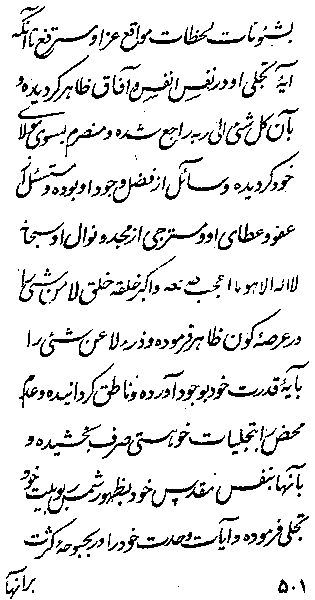 بشئونات لحظات مواقع عز او مترقع تا آنکه
آیهٔ تجلی او در نفس انفس و آفاق ظاهر گردیده و
بآن کل شئ الی ربه راجع شده و منصرم بسوی مولای
خود گردیده و سائل از فضل وجود او بوده و متسئل از
عفو و عطای او و مترجی از مجد و نوال او سبحانه
لا اله الا هو ما اعجب صنعه و اکبر خلقه خلق لا من شئ را
در عرصهٔ کون ظاهر فرموده و ذرء لا عن شئی را
بآیهٔ قدرت خود بوجود آورده و ناطق گردانیده و عدم
محض را بتجلیات خود هستی صرف بخشیده و
بآنها بنفس مقدس خود بظهور شمس ربوبیت خود
تجلی فرموده و آیات وحدت خود را در بحبوحهٔ کثرت
بر آنها
۵۰۱